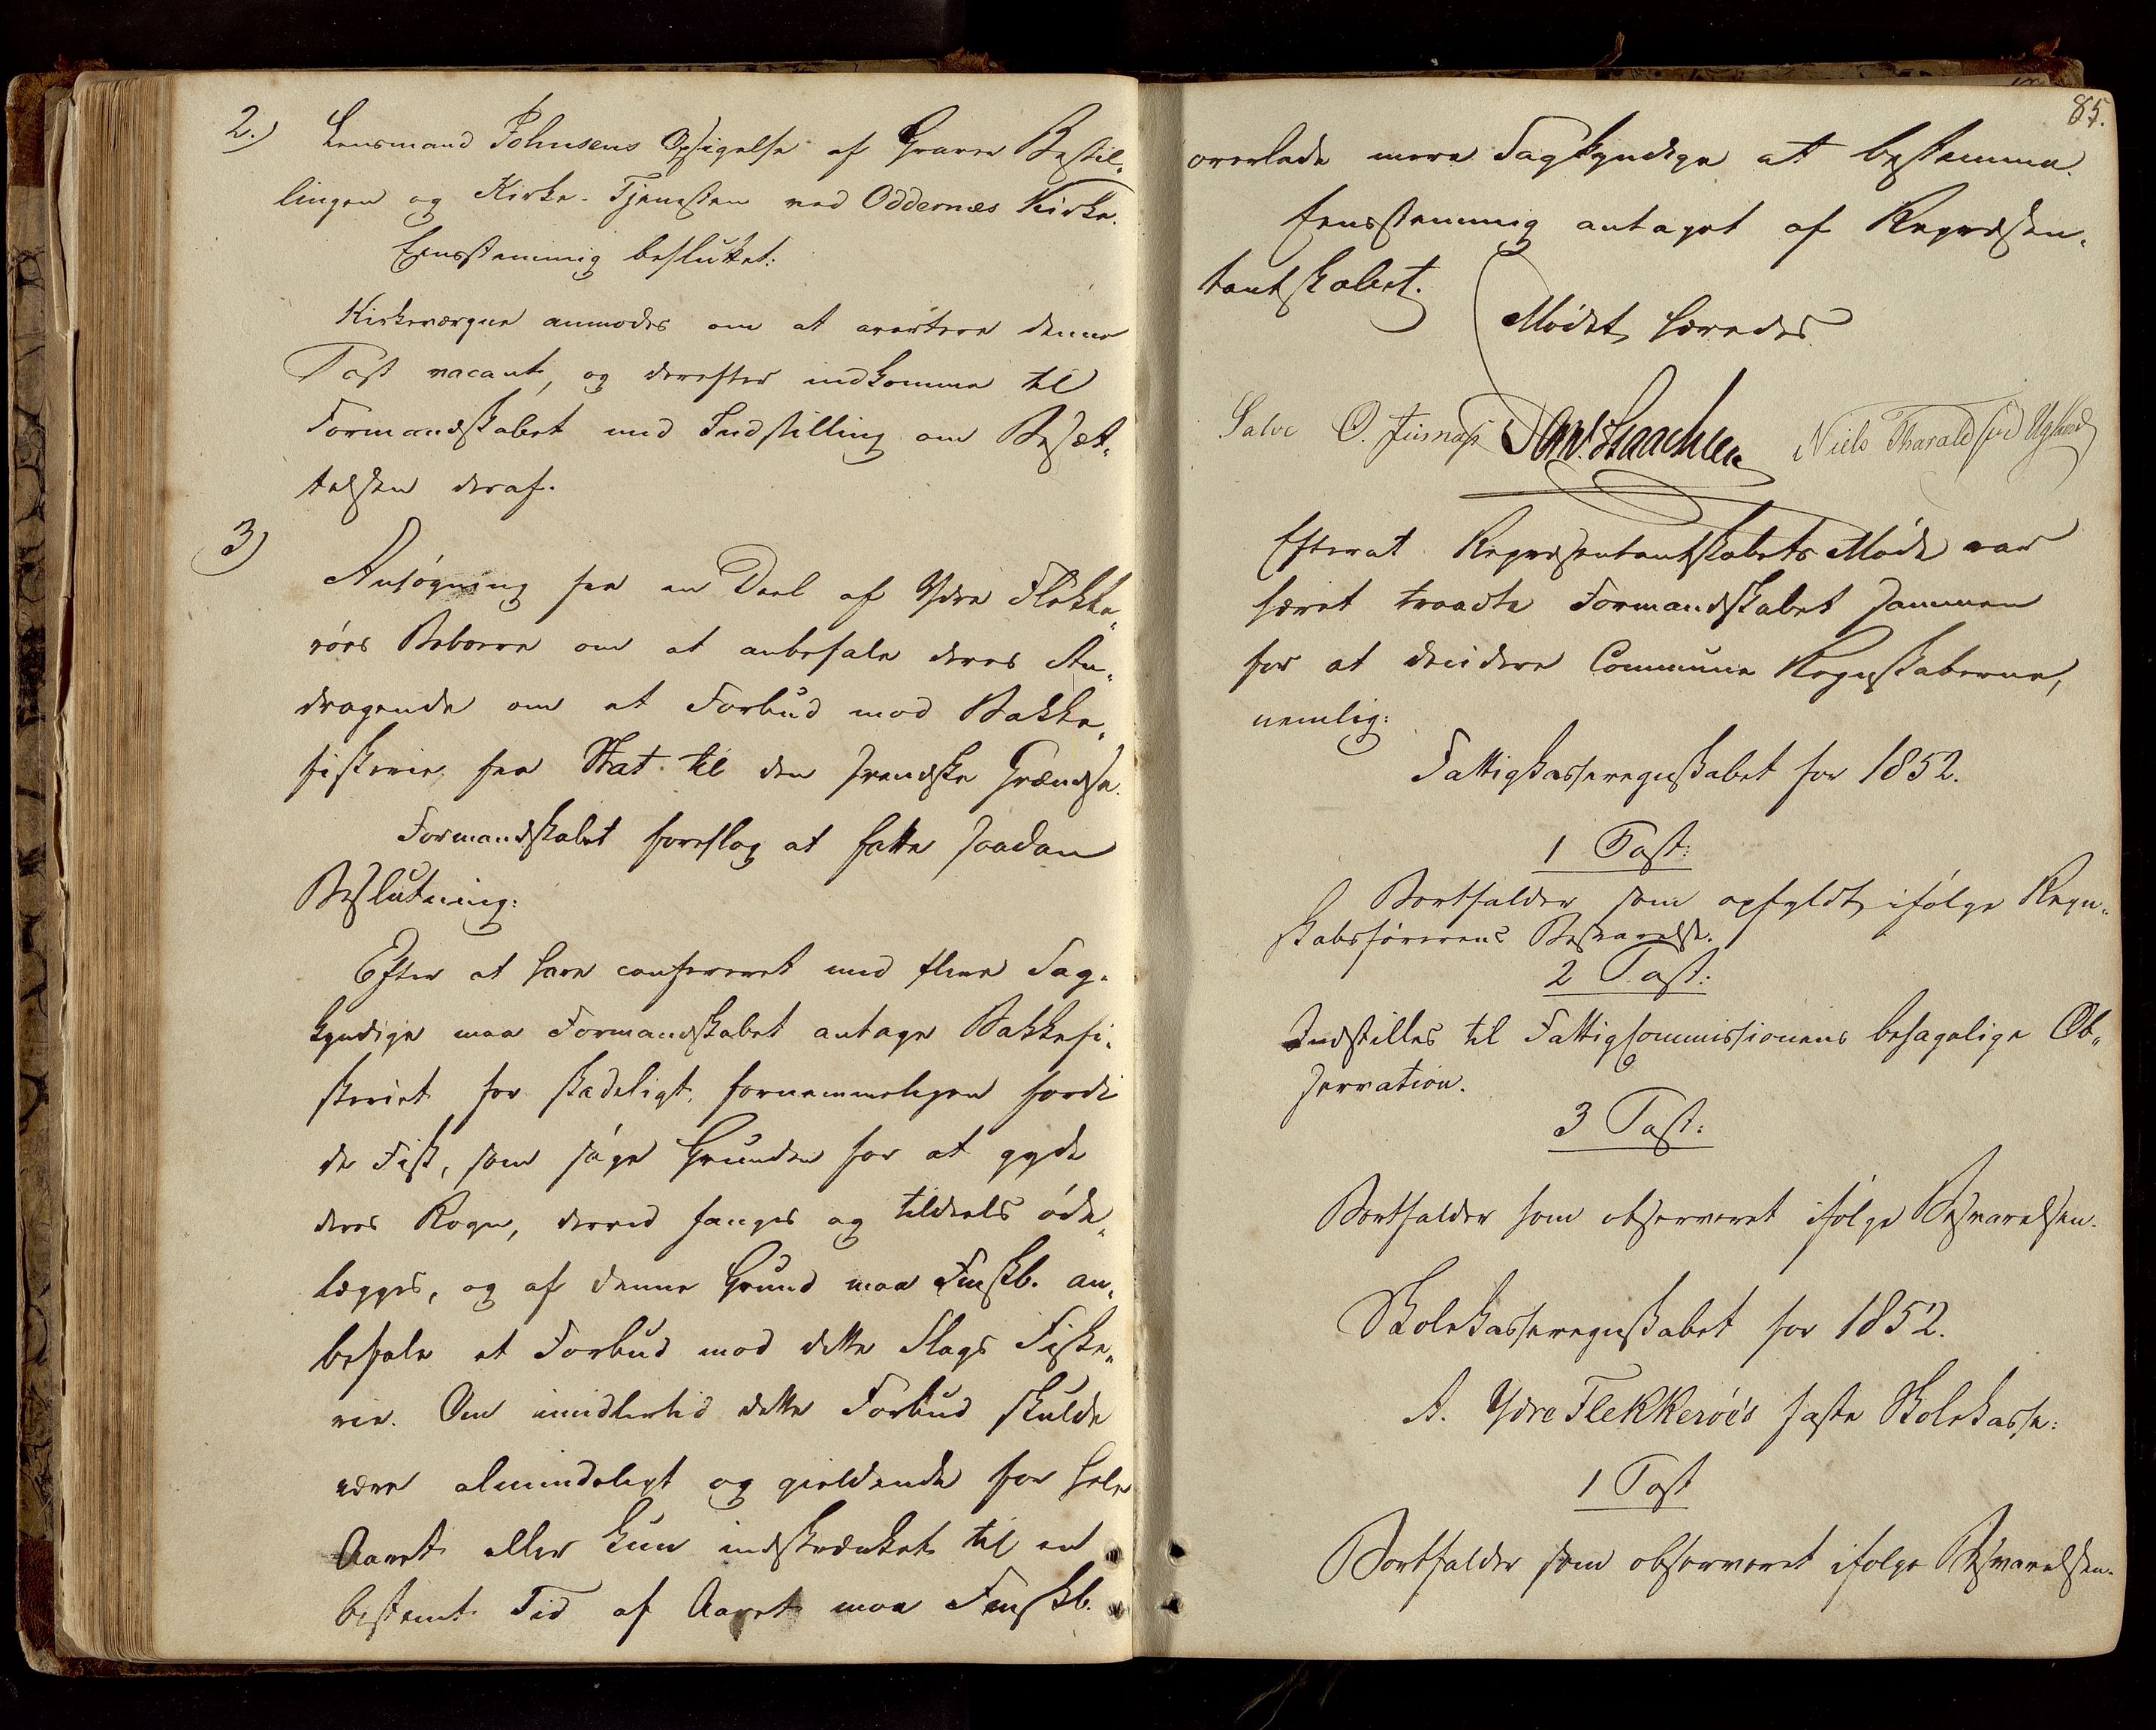 2.) Lensmand Johnsens Opsigelse af Graver Bestil-
lingen og Kirke-Tjenesten ved Oddernæs Kirke.
Eensstemmig besluttet:
Kirkeværgen anmodes om at avertere denne
Post vacant, og derefter indkomme til
Formandskabet med Indstilling om Besæt-
telsen deraf.
3) Ansøgning fra en Deel af Ydre Flekke-
røes Beboere om at anbefale deres An-
dragende om et Forbud mod Bakke-
fiskerie fra Stat til den svenske Grændse.
Formandskabet foreslog at fatte saadan
Beslutning:
Efter at have confereret med flere Sag-
kyndige maa Formandskabet antage Bakkefi-
skeriet for skadeligt, fornemmeligen fordi
de Fisk, som søge Grunden for at gyde
deres Rogn, derved fanges og tildeels øde-
lægges, og af denne Grund maa Fmskb. an-
befale et Forbud mod dette Slags Fiske-
rie. Om imidlertid dette Forbud skulde
være almindeligt og gieldende for hele
Aaret eller kun indskrænket til en
bestemt Tid af Aaret maa Fmskb.
85.
overlade mere Sagkyndige at bestemme.
Eensstemmig antaget af Repræsen-
tantskabet.
Mødet hævedes
Salve O. Niels Tharaldsen Ugland
Efterat Repræsentantskabets Møde var
hævet traadte Formandskabet sammen
for at decidere Commune Regnskaberne,
nemlig:
Fattigkasseregnskabet for 1852.
1 Post:
Bortfalder som opfyldt ifølge Regn-
skabsførerens Besvarelse.
2 Post:
Indstilles til Fattigcommissionens behagelige Ob-
servation.
3 Post:
Bortfalder som observeret ifølge Besvarelsen.
Skolekasseregnskabet for 1852.
A. Ydre Flekkerøes faste Skolekasse:
1 Post
Bortfalder som observeret ifølge Besvarelsen.